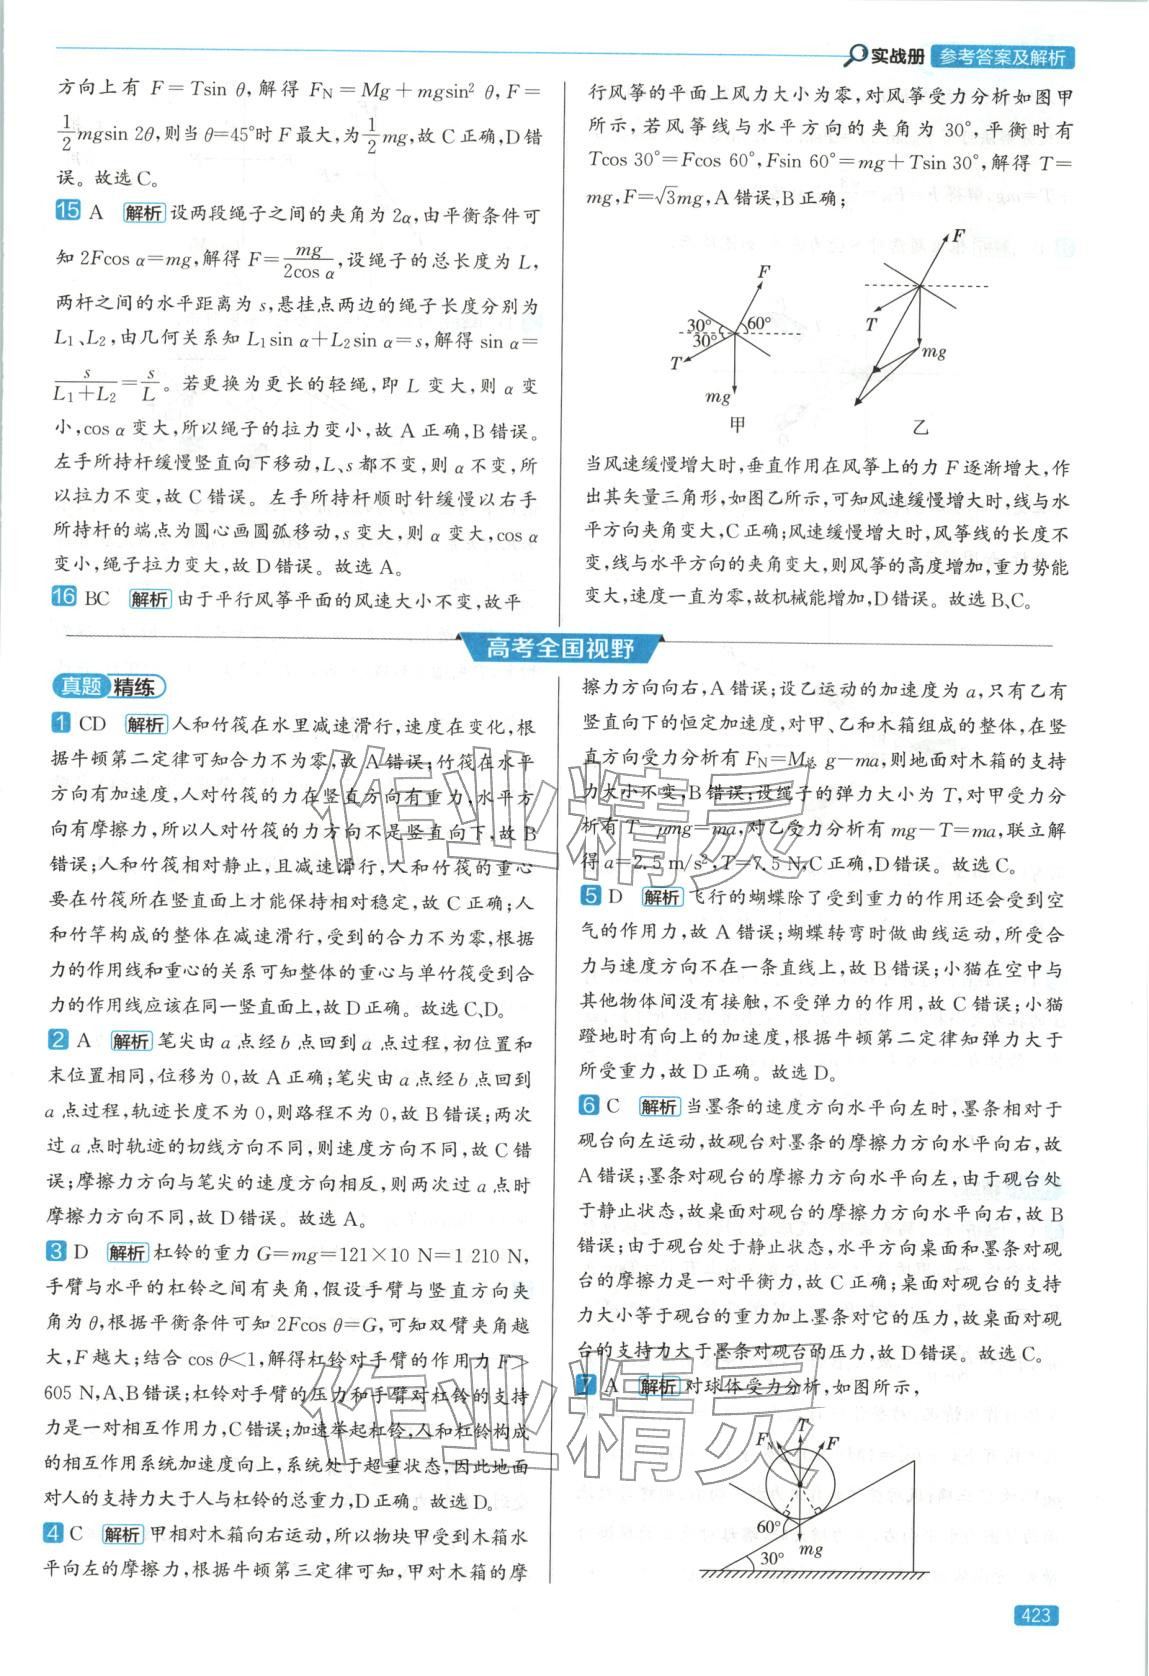 实战册 参考答案及解析
方向上有 F=Tsin θ,解得 FN=Mg+mgsin² θ,F=
1/2 mgsin 2θ,则当θ=45°时 F 最大,为1/2 mg,故 C 正确,D 错
误。故选 C。
15 A 解析 设两段绳子之间的夹角为 2α,由平衡条件可
知 2Fcos α=mg,解得 F=mg/2cos α,设绳子的总长度为 L,
两杆之间的水平距离为 s,悬挂点两边的绳子长度分别为
L₁、L₂,由几何关系知 L₁sin α+L₂sin α=s,解得 sin α=
s/L₁+L₂=s/L。若更换为更长的轻绳,即 L 变大,则 α 变
小,cos α 变大,所以绳子的拉力变小,故 A 正确,B 错误。
左手所持杆缓慢竖直向下移动,L、s 都不变,则 α 不变,所
以拉力不变,故 C 错误。左手所持杆顺时针缓慢以右手
所持杆的端点为圆心画圆弧移动,s 变大,则 α 变大,cos α
变小,绳子拉力变大,故 D 错误。故选 A。
16 BC 解析 由于平行风筝平面的风速大小不变,故平
行风筝的平面上风力大小为零,对风筝受力分析如图甲
所示,若风筝线与水平方向的夹角为 30°,平衡时有
Tcos 30°=Fcos 60°,Fsin 60°=mg+Tsin 30°,解得 T=
mg,F=√3mg,A 错误,B 正确;
F
30°
60°
30°
T
mg
甲
F
T
mg
乙
当风速缓慢增大时,垂直作用在风筝上的力 F 逐渐增大,作
出其矢量三角形,如图乙所示,可知风速缓慢增大时,线与水
平方向夹角变大,C 正确;风速缓慢增大时,风筝线的长度不
变,线与水平方向的夹角变大,则风筝的高度增加,重力势能
变大,速度一直为零,故机械能增加,D 错误。故选 B、C。
高考全国视野
真题 精练
1 CD 解析 人和竹筏在水里减速滑行,速度在变化,根
据牛顿第二定律可知合力不为零,故 A 错误;竹筏在水平
方向有加速度,人对竹筏的力在竖直方向有重力,水平方
向有摩擦力,所以人对竹筏的力方向不是竖直向下,故 B
错误;人和竹筏相对静止,且减速滑行,人和竹筏的重心
要在竹筏所在竖直面上才能保持相对稳定,故 C 正确;人
和竹竿构成的整体在减速滑行,受到的合力不为零,根据
力的作用线和重心的关系可知整体的重心与单竹筏受到合
力的作用线应该在同一竖直面上,故 D 正确。故选 C、D。
2 A 解析 笔尖由 a 点经 b 点回到 a 点过程,初位置和
末位置相同,位移为 0,故 A 正确;笔尖由 a 点经 b 点回到
a 点过程,轨迹长度不为 0,则路程不为 0,故 B 错误;两次
过 a 点时轨迹的切线方向不同,则速度方向不同,故 C 错
误;摩擦力方向与笔尖的速度方向相反,则两次过 a 点时
摩擦力方向不同,故 D 错误。故选 A。
3 D 解析 杠铃的重力 G=mg=121×10 N=1 210 N,
手臂与水平的杠铃之间有夹角,假设手臂与竖直方向夹
角为 θ,根据平衡条件可知 2Fcos θ=G,可知双臂夹角越
大,F 越大;结合 cos θ<1,解得杠铃对手臂的作用力 F>
605 N,A、B 错误;杠铃对手臂的压力和手臂对杠铃的支持
力是一对相互作用力,C 错误;加速举起杠铃,人和杠铃构成
的相互作用系统加速度向上,系统处于超重状态,因此地面
对人的支持力大于人与杠铃的总重力,D 正确。故选 D。
4 C 解析 甲相对木箱向右运动,所以物块甲受到木箱水
平向左的摩擦力,根据牛顿第三定律可知,甲对木箱的摩
擦力方向向右,A 错误;设乙运动的加速度为 a,只有乙有
竖直向下的恒定加速度,对甲、乙和木箱组成的整体,在竖
直方向受力分析有 FN=M总 g-ma,则地面对木箱的支持
力大小不变,B 错误;设绳子的弹力大小为 T,对甲受力分
析有 T-μmg=ma,对乙受力分析有 mg-T=ma,联立解
得 a=2.5 m/s²,T=7.5 N,C 正确,D 错误。故选 C。
5 D 解析 飞行的蝴蝶除了受到重力的作用还会受到空
气的作用力,故 A 错误;蝴蝶转弯时做曲线运动,所受合
力与速度方向不在一条直线上,故 B 错误;小猫在空中与
其他物体间没有接触,不受弹力的作用,故 C 错误;小猫
蹬地时有向上的加速度,根据牛顿第二定律知弹力大于
所受重力,故 D 正确。故选 D。
6 C 解析 当墨条的速度方向水平向左时,墨条相对于
砚台向左运动,故砚台对墨条的摩擦力方向水平向右,故
A 错误;墨条对砚台的摩擦力方向水平向左,由于砚台处
于静止状态,故桌面对砚台的摩擦力方向水平向右,故 B
错误;由于砚台处于静止状态,水平方向桌面和墨条对砚
台的摩擦力是一对平衡力,故 C 正确;桌面对砚台的支持
力大小等于砚台的重力加上墨条对它的压力,故桌面对砚
台的支持力大于墨条对砚台的压力,故 D 错误。故选 C。
7 A 解析 对球体受力分析,如图所示,
T
FN
F
60°
mg
30°
作业精灵
作业精灵
423